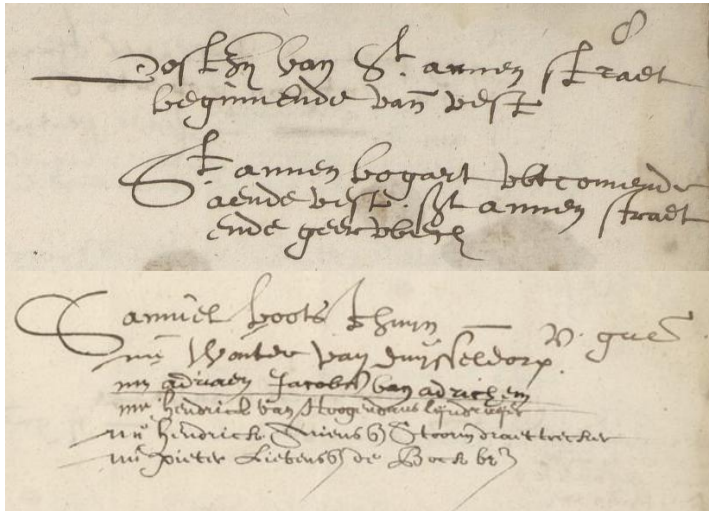 8
Oostzy van St. annen straet
beginnende van vest
St annen bogart vvtcomende
aende veste. St annen straet
ende geerwech
Samuel boots thuyn
nu Wouter van duysseldorp. v. gue
nu adriaen Jacobs van adrichem
nu hendrick van hoogendans lijndraijer
nu hendrick Sniens Stoorm draettrecker
nu pieter Lievens de Bock br